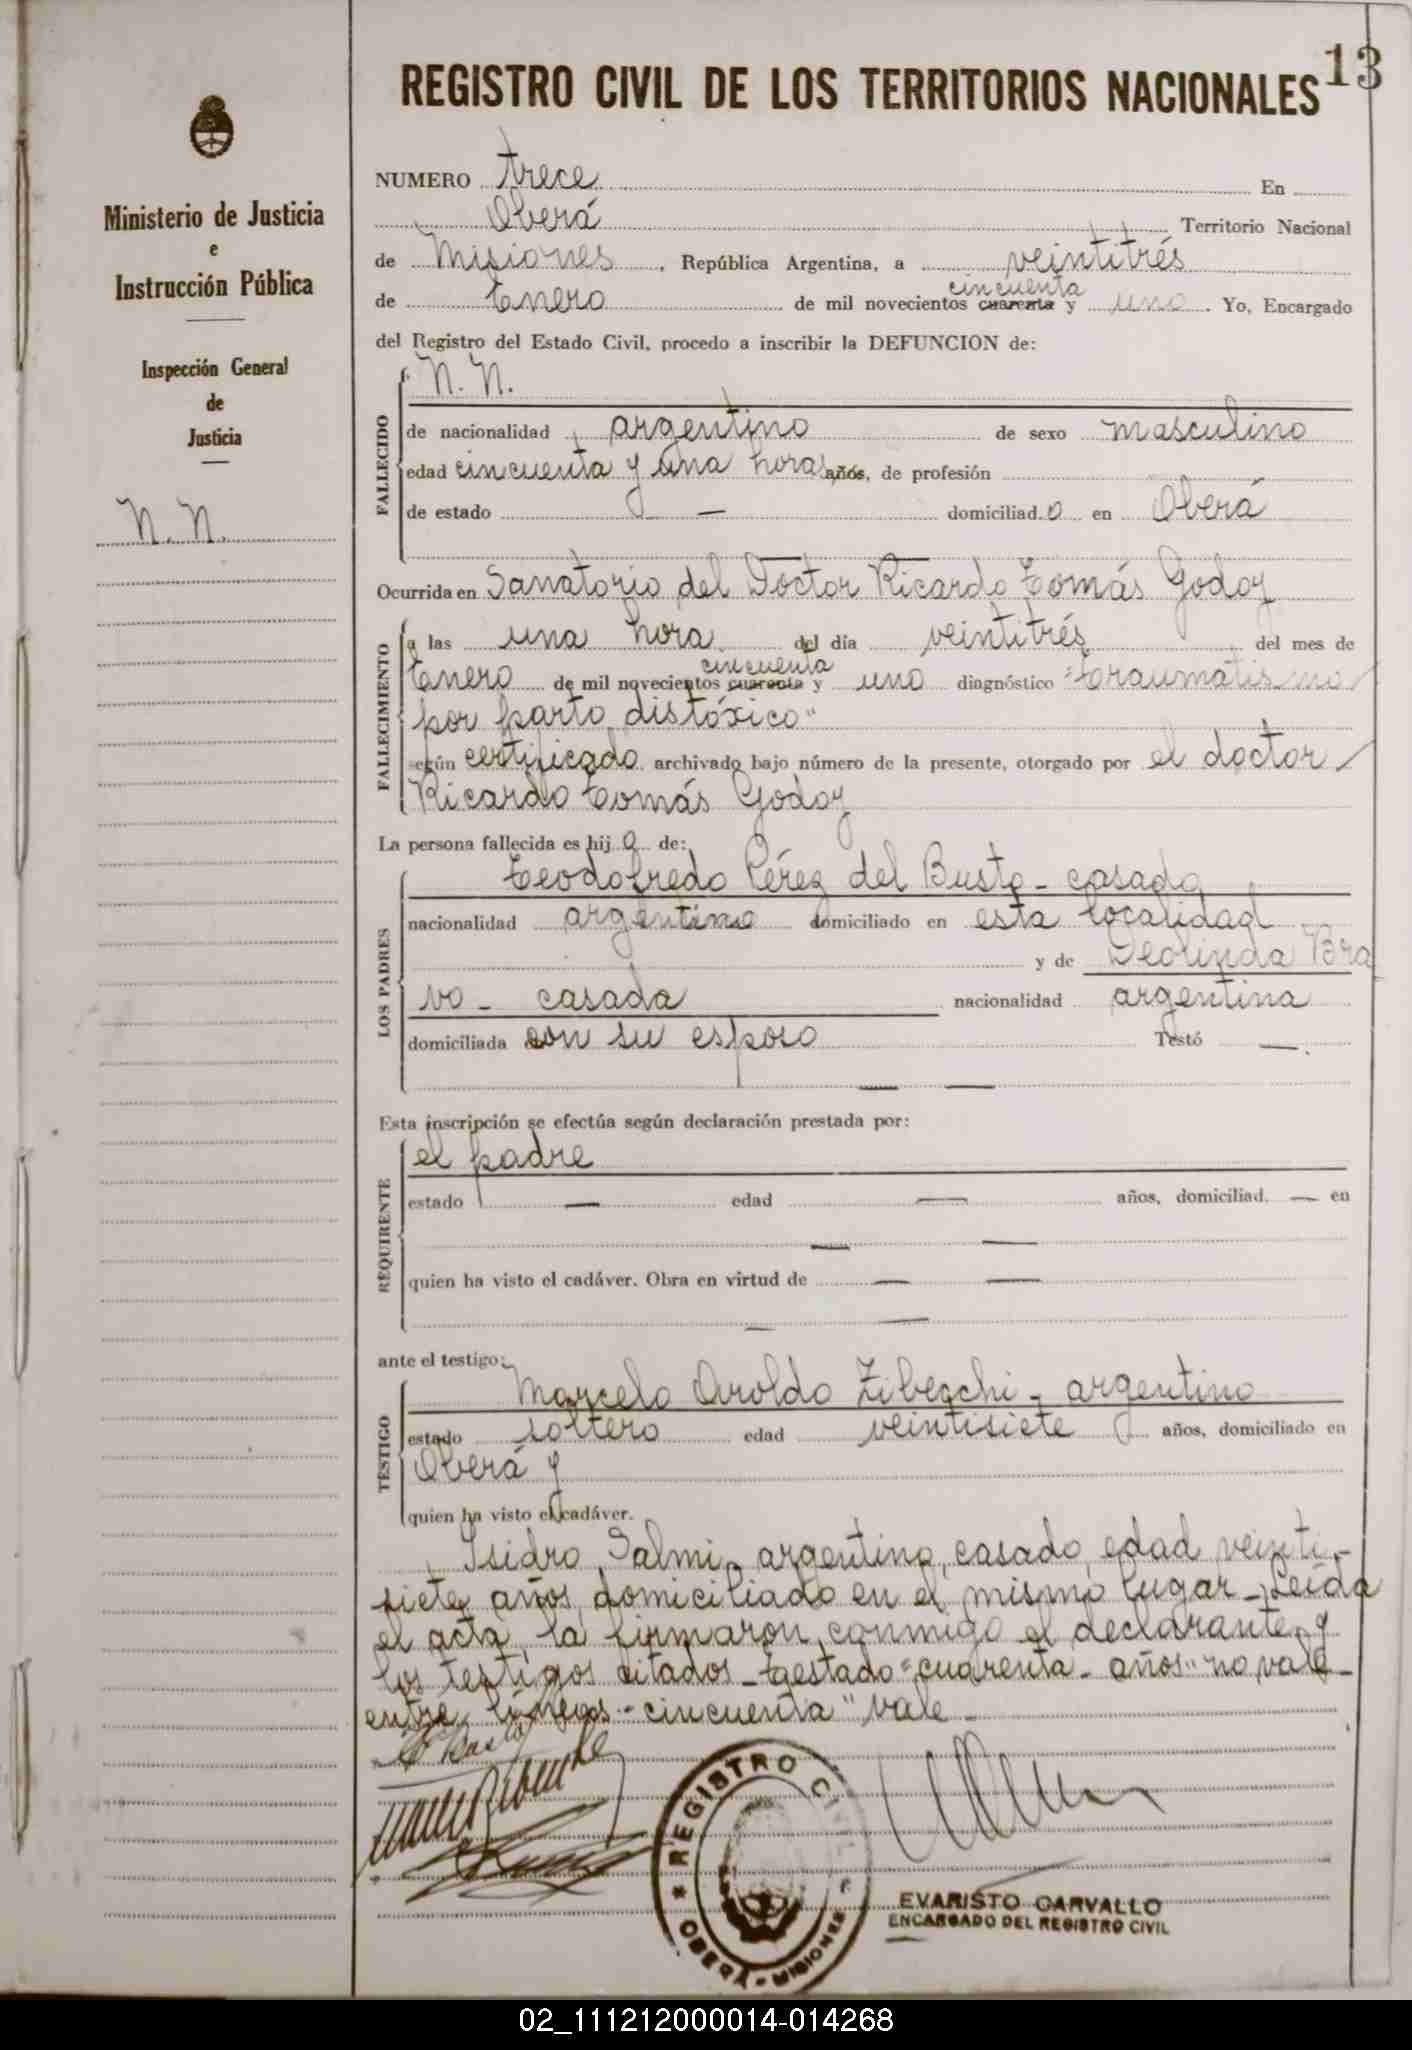 13
REGISTRO CIVIL DE LOS TERRITORIOS NACIONALES
Ministerio de Justicia
e
Instrucción Pública
Inspección General
de
Justicia
N. N.
NUMERO trece En
Oberá Territorio Nacional
de Misiones, República Argentina, a veintitrés
cincuenta
de Enero de mil novecientos cuarenta y uno. Yo, Encargado
del Registro del Estado Civil, procedo a inscribir la DEFUNCION de:
FALLECIDO
N. N.
de nacionalidad argentino de sexo masculino
edad cincuenta y una horas años, de profesión
de estado — domiciliad o en Oberá
Ocurrida en Sanatorio del Doctor Ricardo Tomás Godoy
FALLECIMIENTO
a las una hora del día veintitrés del mes de
cincuenta
Enero de mil novecientos cuarenta y uno diagnóstico "traumatismo
por parto distóxico"
según certificado archivado bajo número de la presente, otorgado por el doctor
Ricardo Tomás Godoy
La persona fallecida es hij o de:
LOS PADRES
Teodofredo Pérez del Busto - casado
nacionalidad argentino domiciliado en esta localidad
y de Deolinda Bra
vo - casada nacionalidad argentina
domiciliada con su esposo Testó —.
— —
Esta inscripción se efectúa según declaración prestada por:
REQUIRENTE
el padre
estado — edad — años, domiciliad. — en
— —
quien ha visto el cadáver. Obra en virtud de — —
— —
ante el testigo:
TESTIGO
Marcelo Aroldo Zibecchi - argentino
estado soltero edad veintisiete años, domiciliado en
Oberá y
quien ha visto el cadáver.
Isidro Salmi - argentino, casado, edad veinti-
siete años, domiciliado en el mismo lugar - Leída
el acta, la firmaron conmigo el declarante y
los testigos citados - testado "cuarenta - años" no vale -
entre líneas - cincuenta" vale -
REGISTRO CIVIL
OBERA - MISIONES
EVARISTO CARVALLO
ENCARGADO DEL REGISTRO CIVIL
02_111212000014-014268